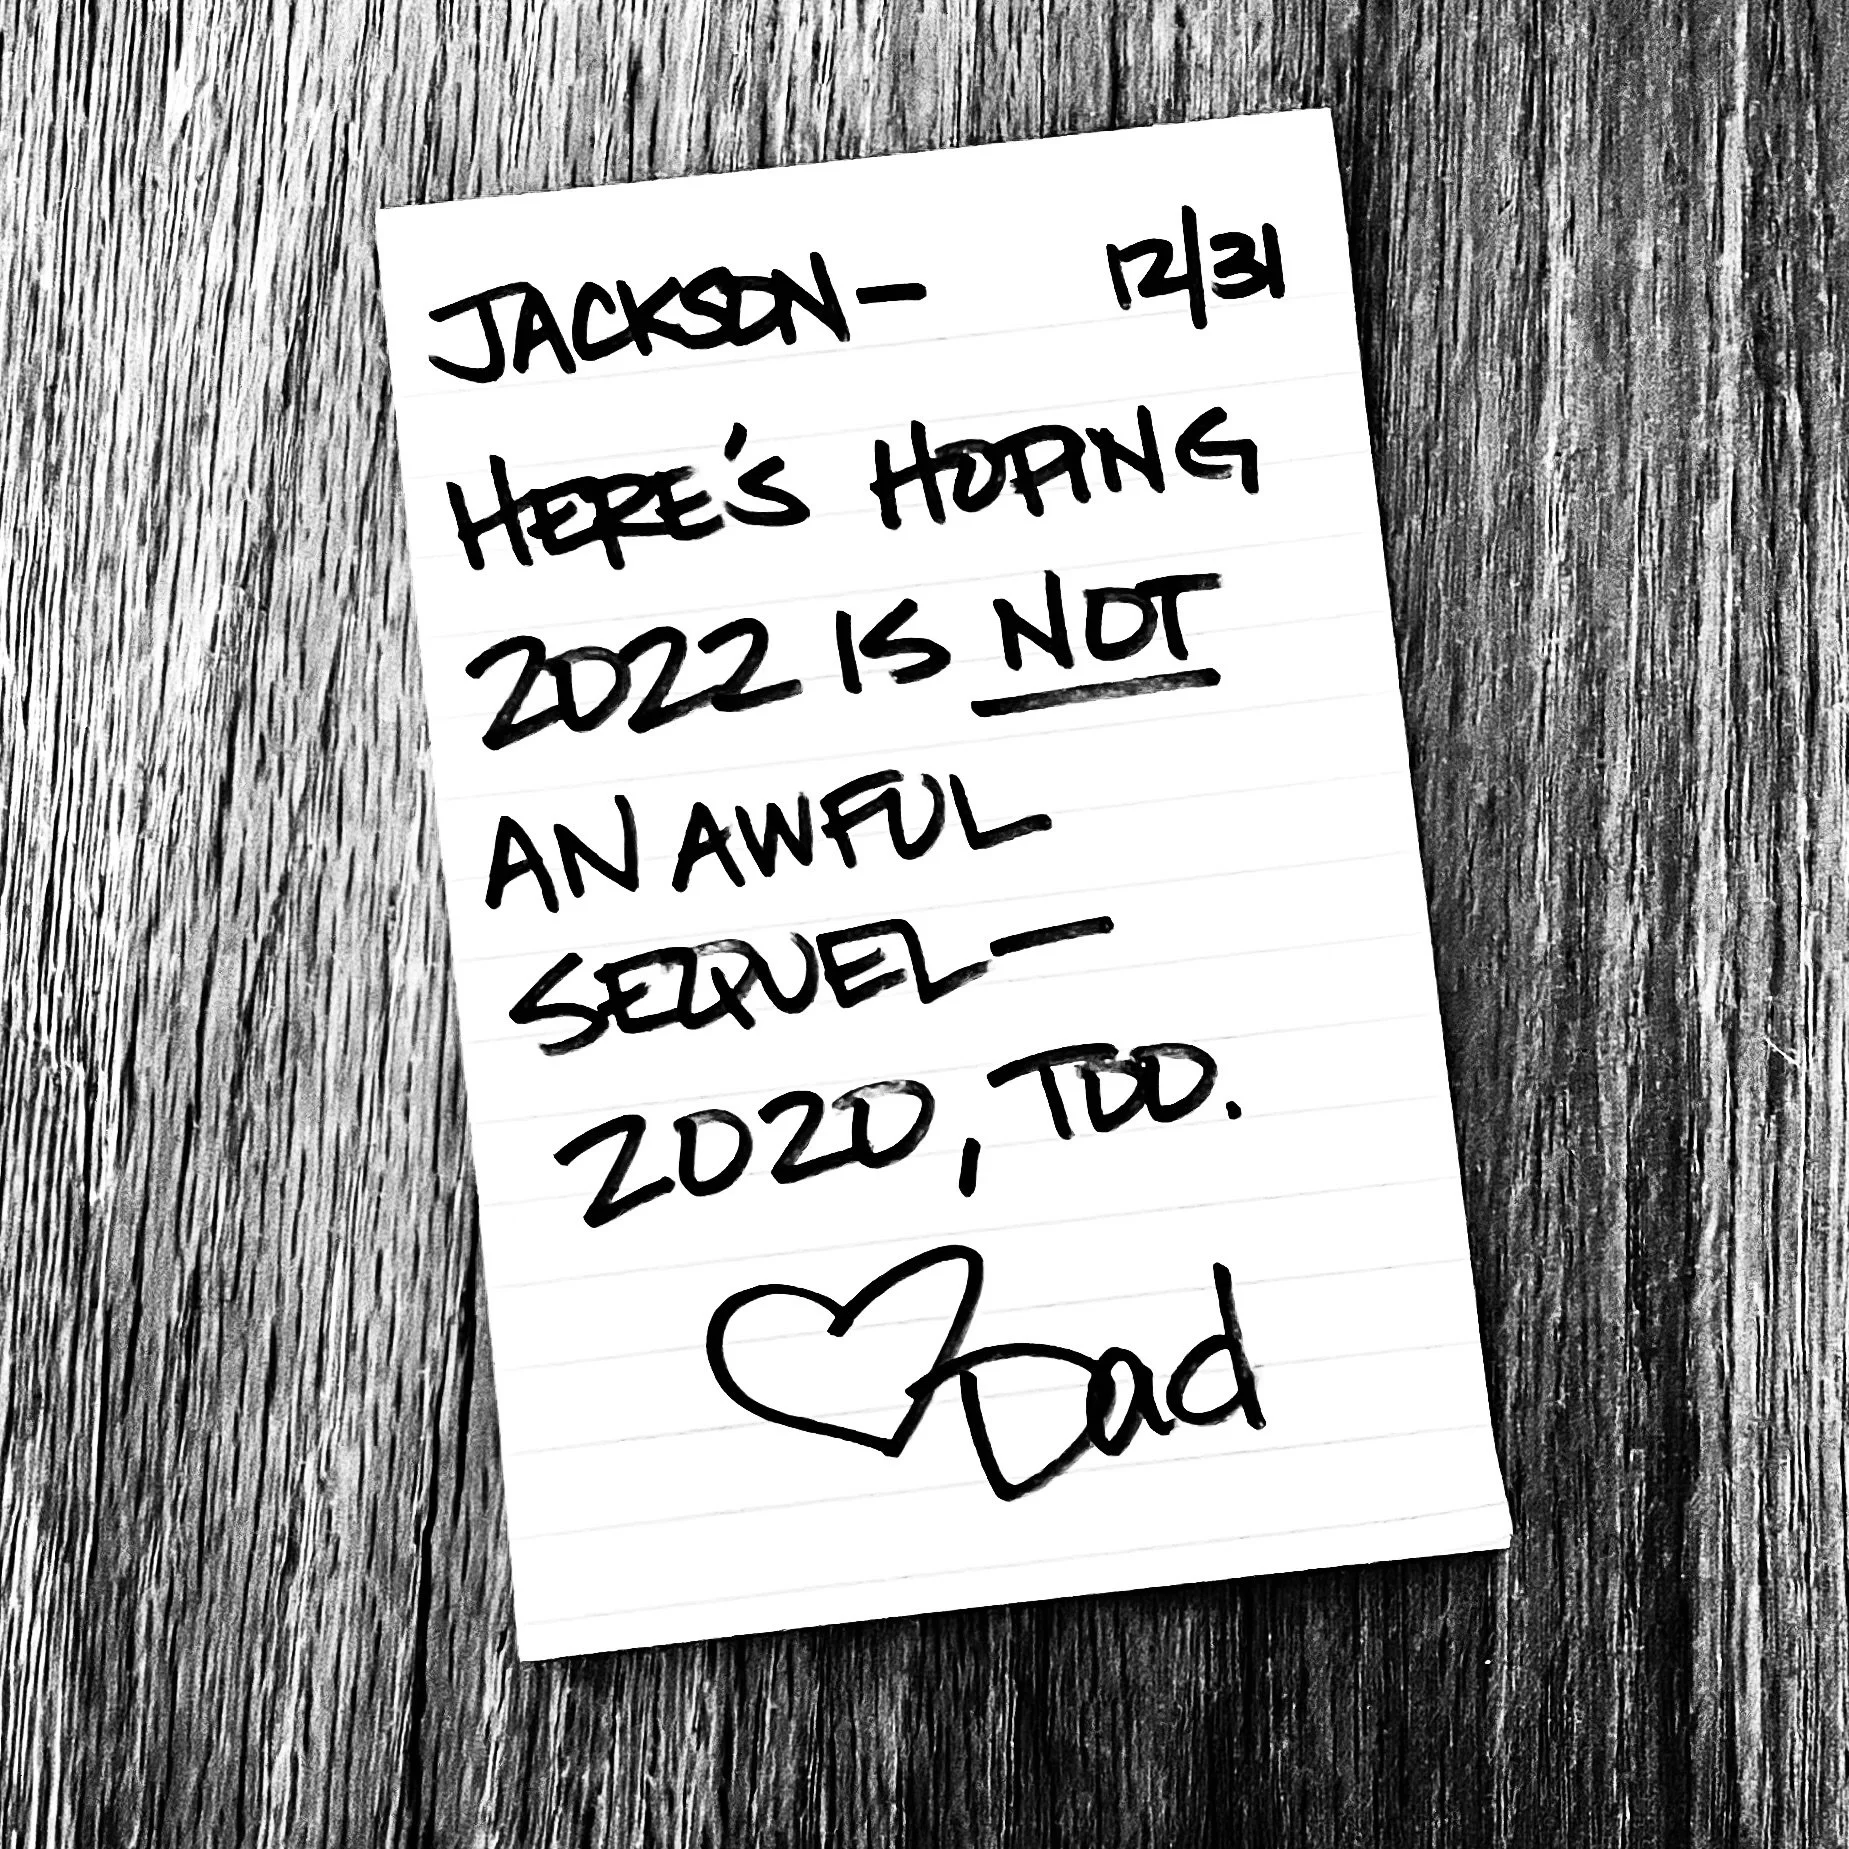 JACKSON— 12/31
HERE'S HOPING
2022 IS NOT
AN AWFUL
SEQUEL—
2020, TOO.
♡ Dad